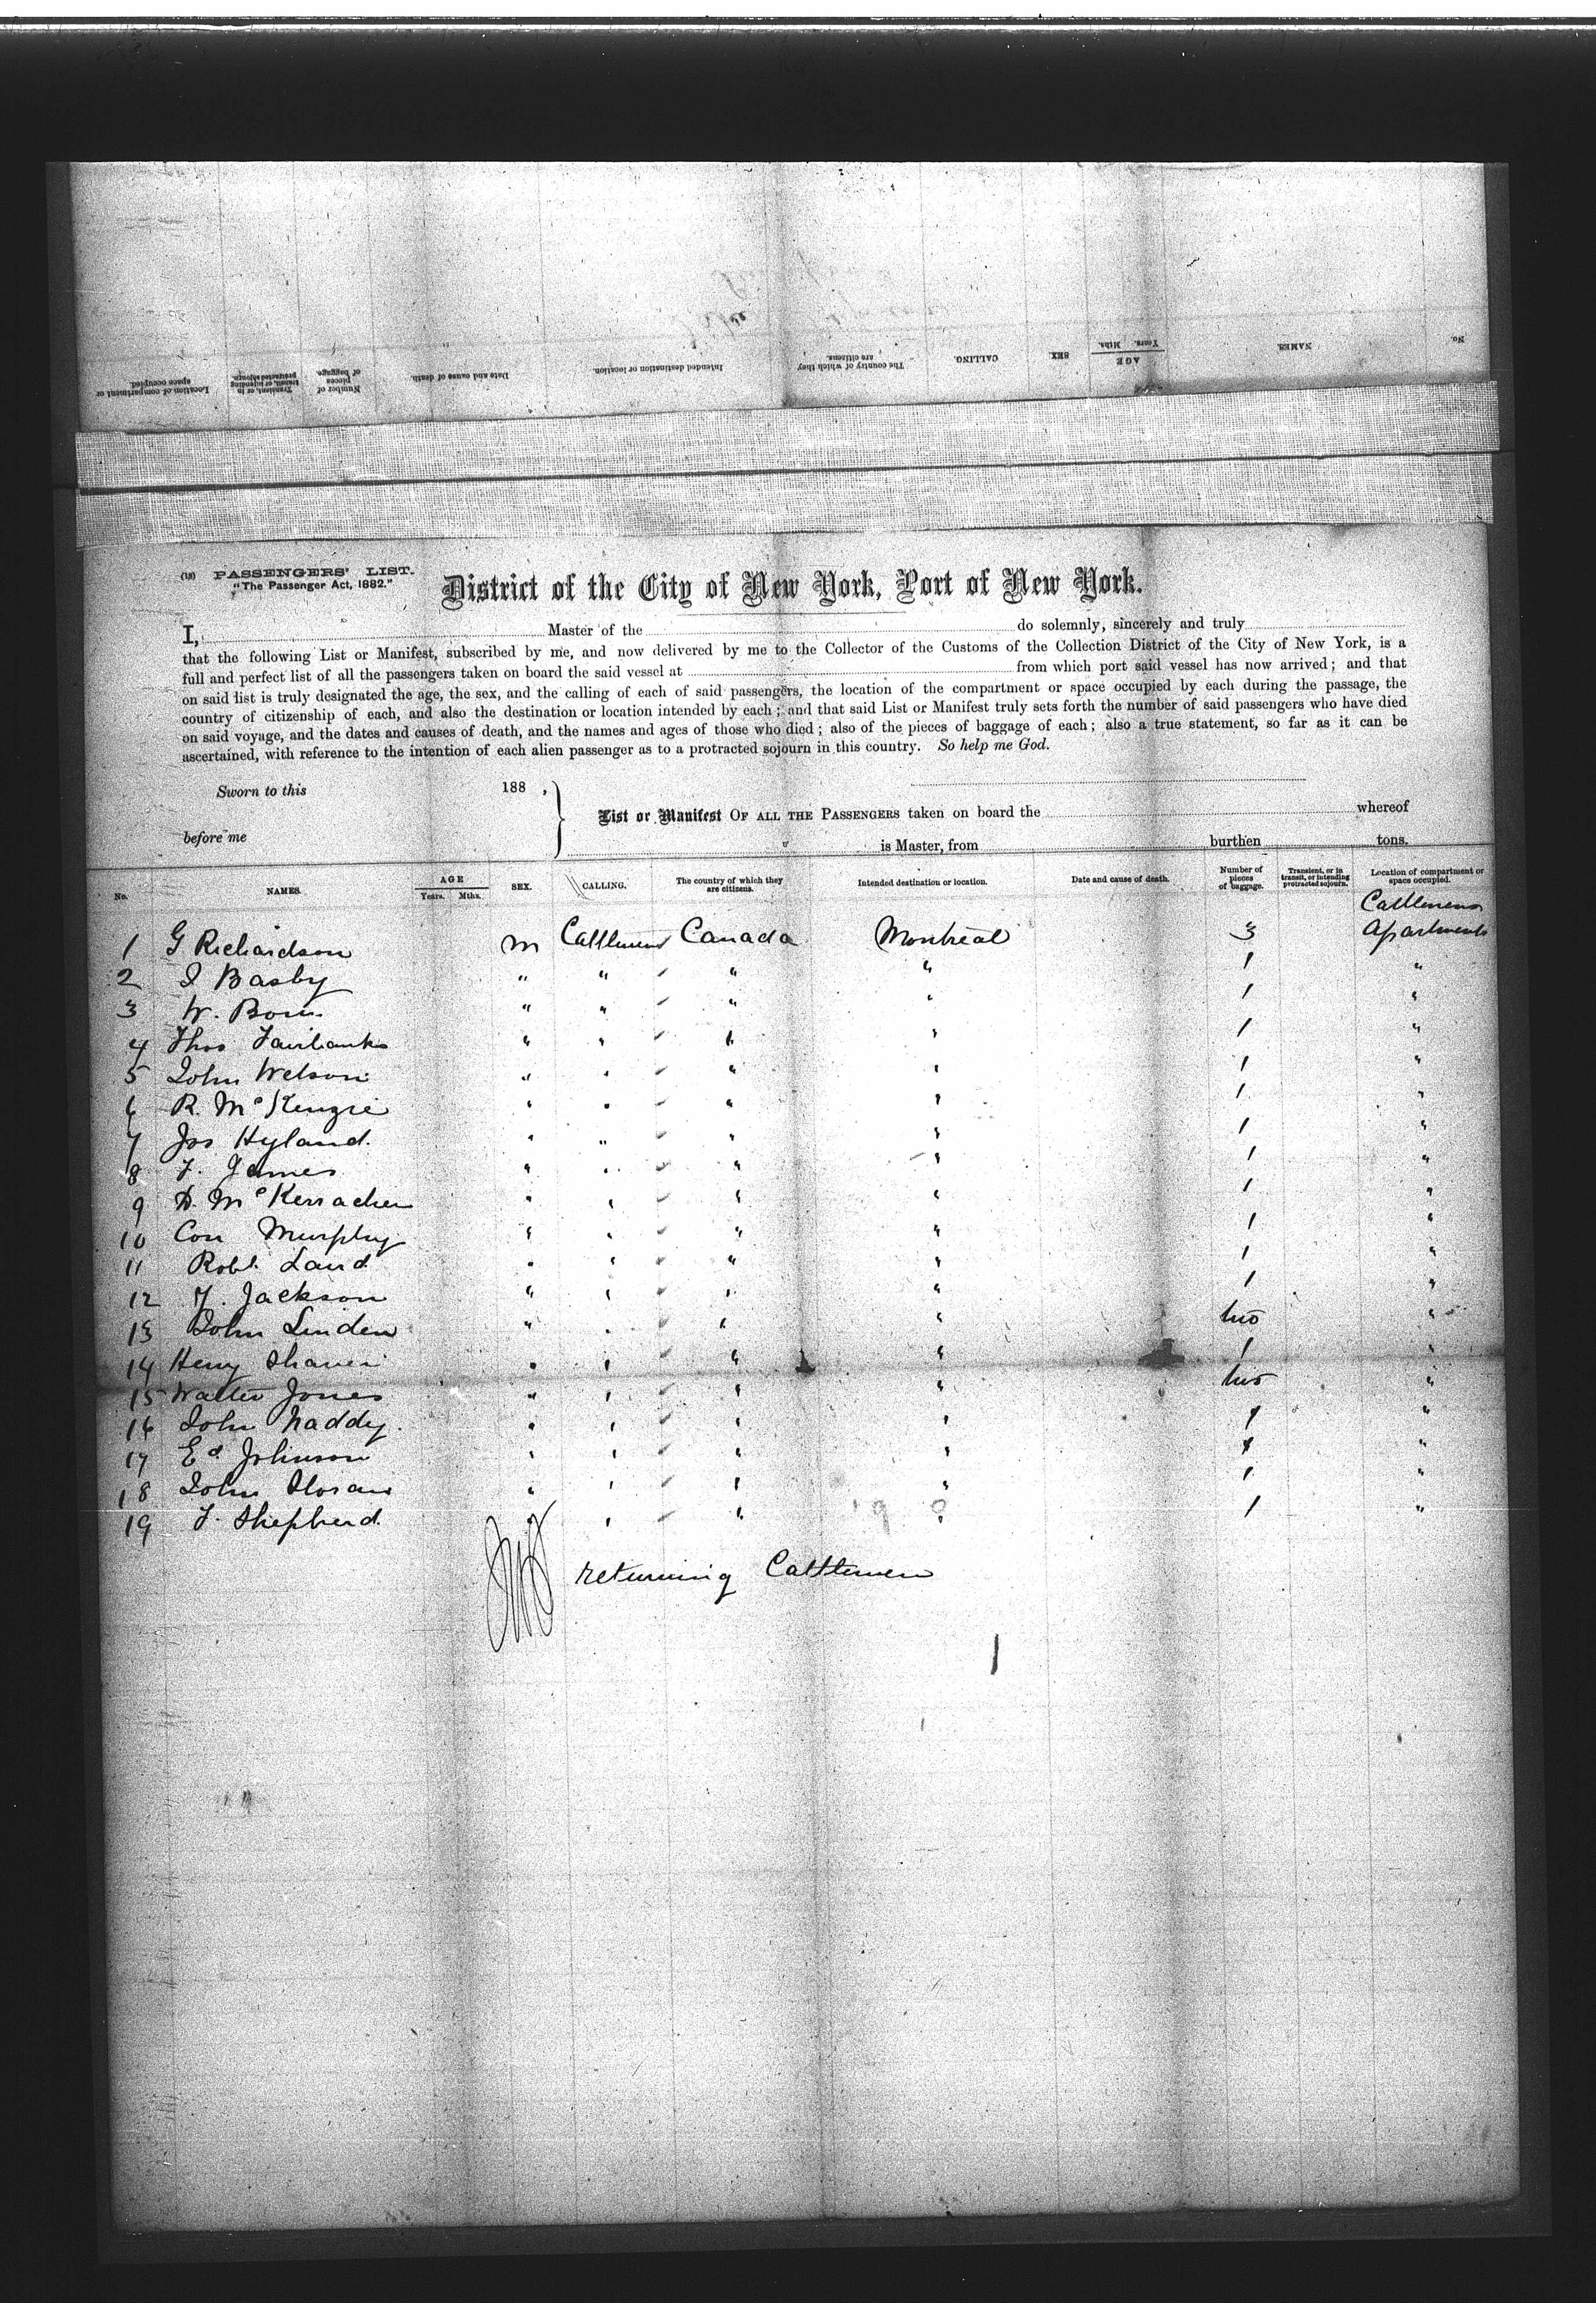 No.
NAMES.
AGE
Years. Mths.
SEX
CALLING.
The country of which they are citizens.
Intended destination or location.
Date and cause of death.
Number of pieces of baggage.
Transient, or in transit, or intending protracted sojourn.
Location of compartment or space occupied.
PASSENGERS' LIST.
"The Passenger Act, 1882."
District of the City of New York, Port of New York.
I, Master of the do solemnly, sincerely and truly
that the following List or Manifest, subscribed by me, and now delivered by me to the Collector of the Customs of the Collection District of the City of New York, is a
full and perfect list of all the passengers taken on board the said vessel at from which port said vessel has now arrived; and that
on said list is truly designated the age, the sex, and the calling of each of said passengers, the location of the compartment or space occupied by each during the passage, the
country of citizenship of each, and also the destination or location intended by each; and that said List or Manifest truly sets forth the number of said passengers who have died
on said voyage, and the dates and causes of death, and the names and ages of those who died; also of the pieces of baggage of each; also a true statement, so far as it can be
ascertained, with reference to the intention of each alien passenger as to a protracted sojourn in this country. So help me God.
Sworn to this 188 ,
before me
List or Manifest OF ALL THE PASSENGERS taken on board the whereof
is Master, from burthen tons.
No. NAMES. AGE Years. Mths. SEX. CALLING. The country of which they are citizens. Intended destination or location. Date and cause of death. Number of pieces of baggage. Transient, or in transit, or intending protracted sojourn. Location of compartment or space occupied.
Cattlemens
1 G Richardson m Cattlemen Canada Montreal 3 Apartments
2 I Basby " " " " 1 "
3 W. " " " " 1 "
4 Thos Fairbanks " " " " 1 "
5 John Welson " " " " 1 "
6 R. McKenzie " " " " 1 "
7 Jos Hyland. " " " " 1 "
8 F. James " " " " 1 "
9 D. McKerracher " " " " 1 "
10 Con Murphy " " " " 1 "
11 Robt. Laird " " " " 1 "
12 Jackson " " " " 1 "
13 John Linden " " " " two "
14 Henry " " " " 1 "
15 Walter Jones " " " " two "
16 John Naddy. " " " " 1 "
17 Ed Johnson " " " " 1 "
18 John " " " " 1 "
19 F. Shepherd. " " " " 1 "
returning Cattlemen